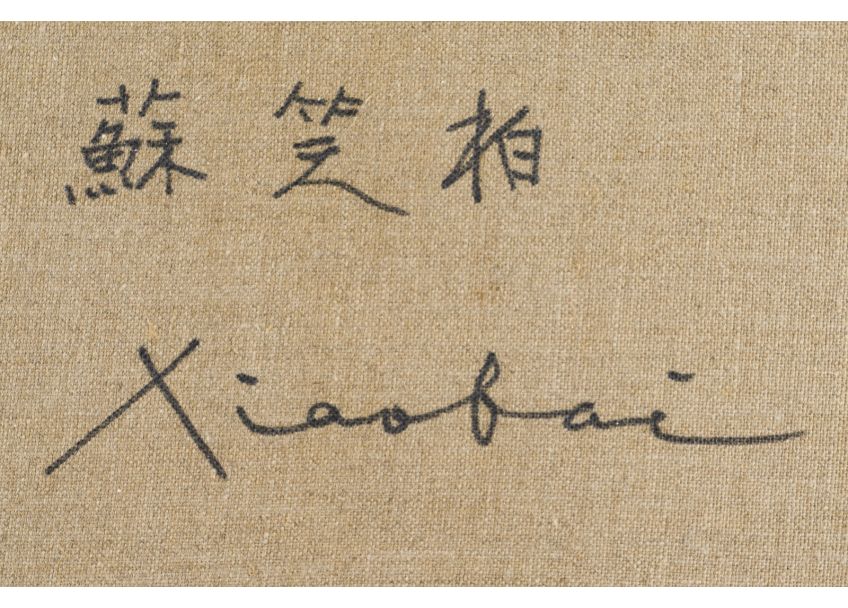 蘇 笑 柏
Xiaobai